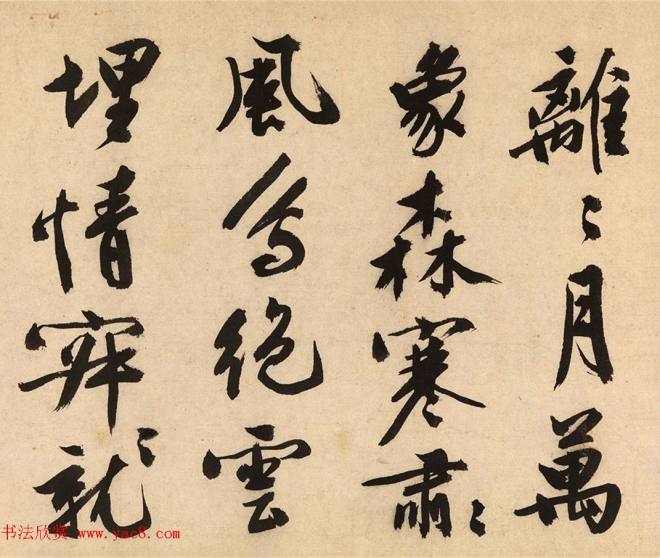 離〻月萬
象森寒肅〻
風鳥絕雲
埋情寂〻
书法欣赏 www.yac8.com